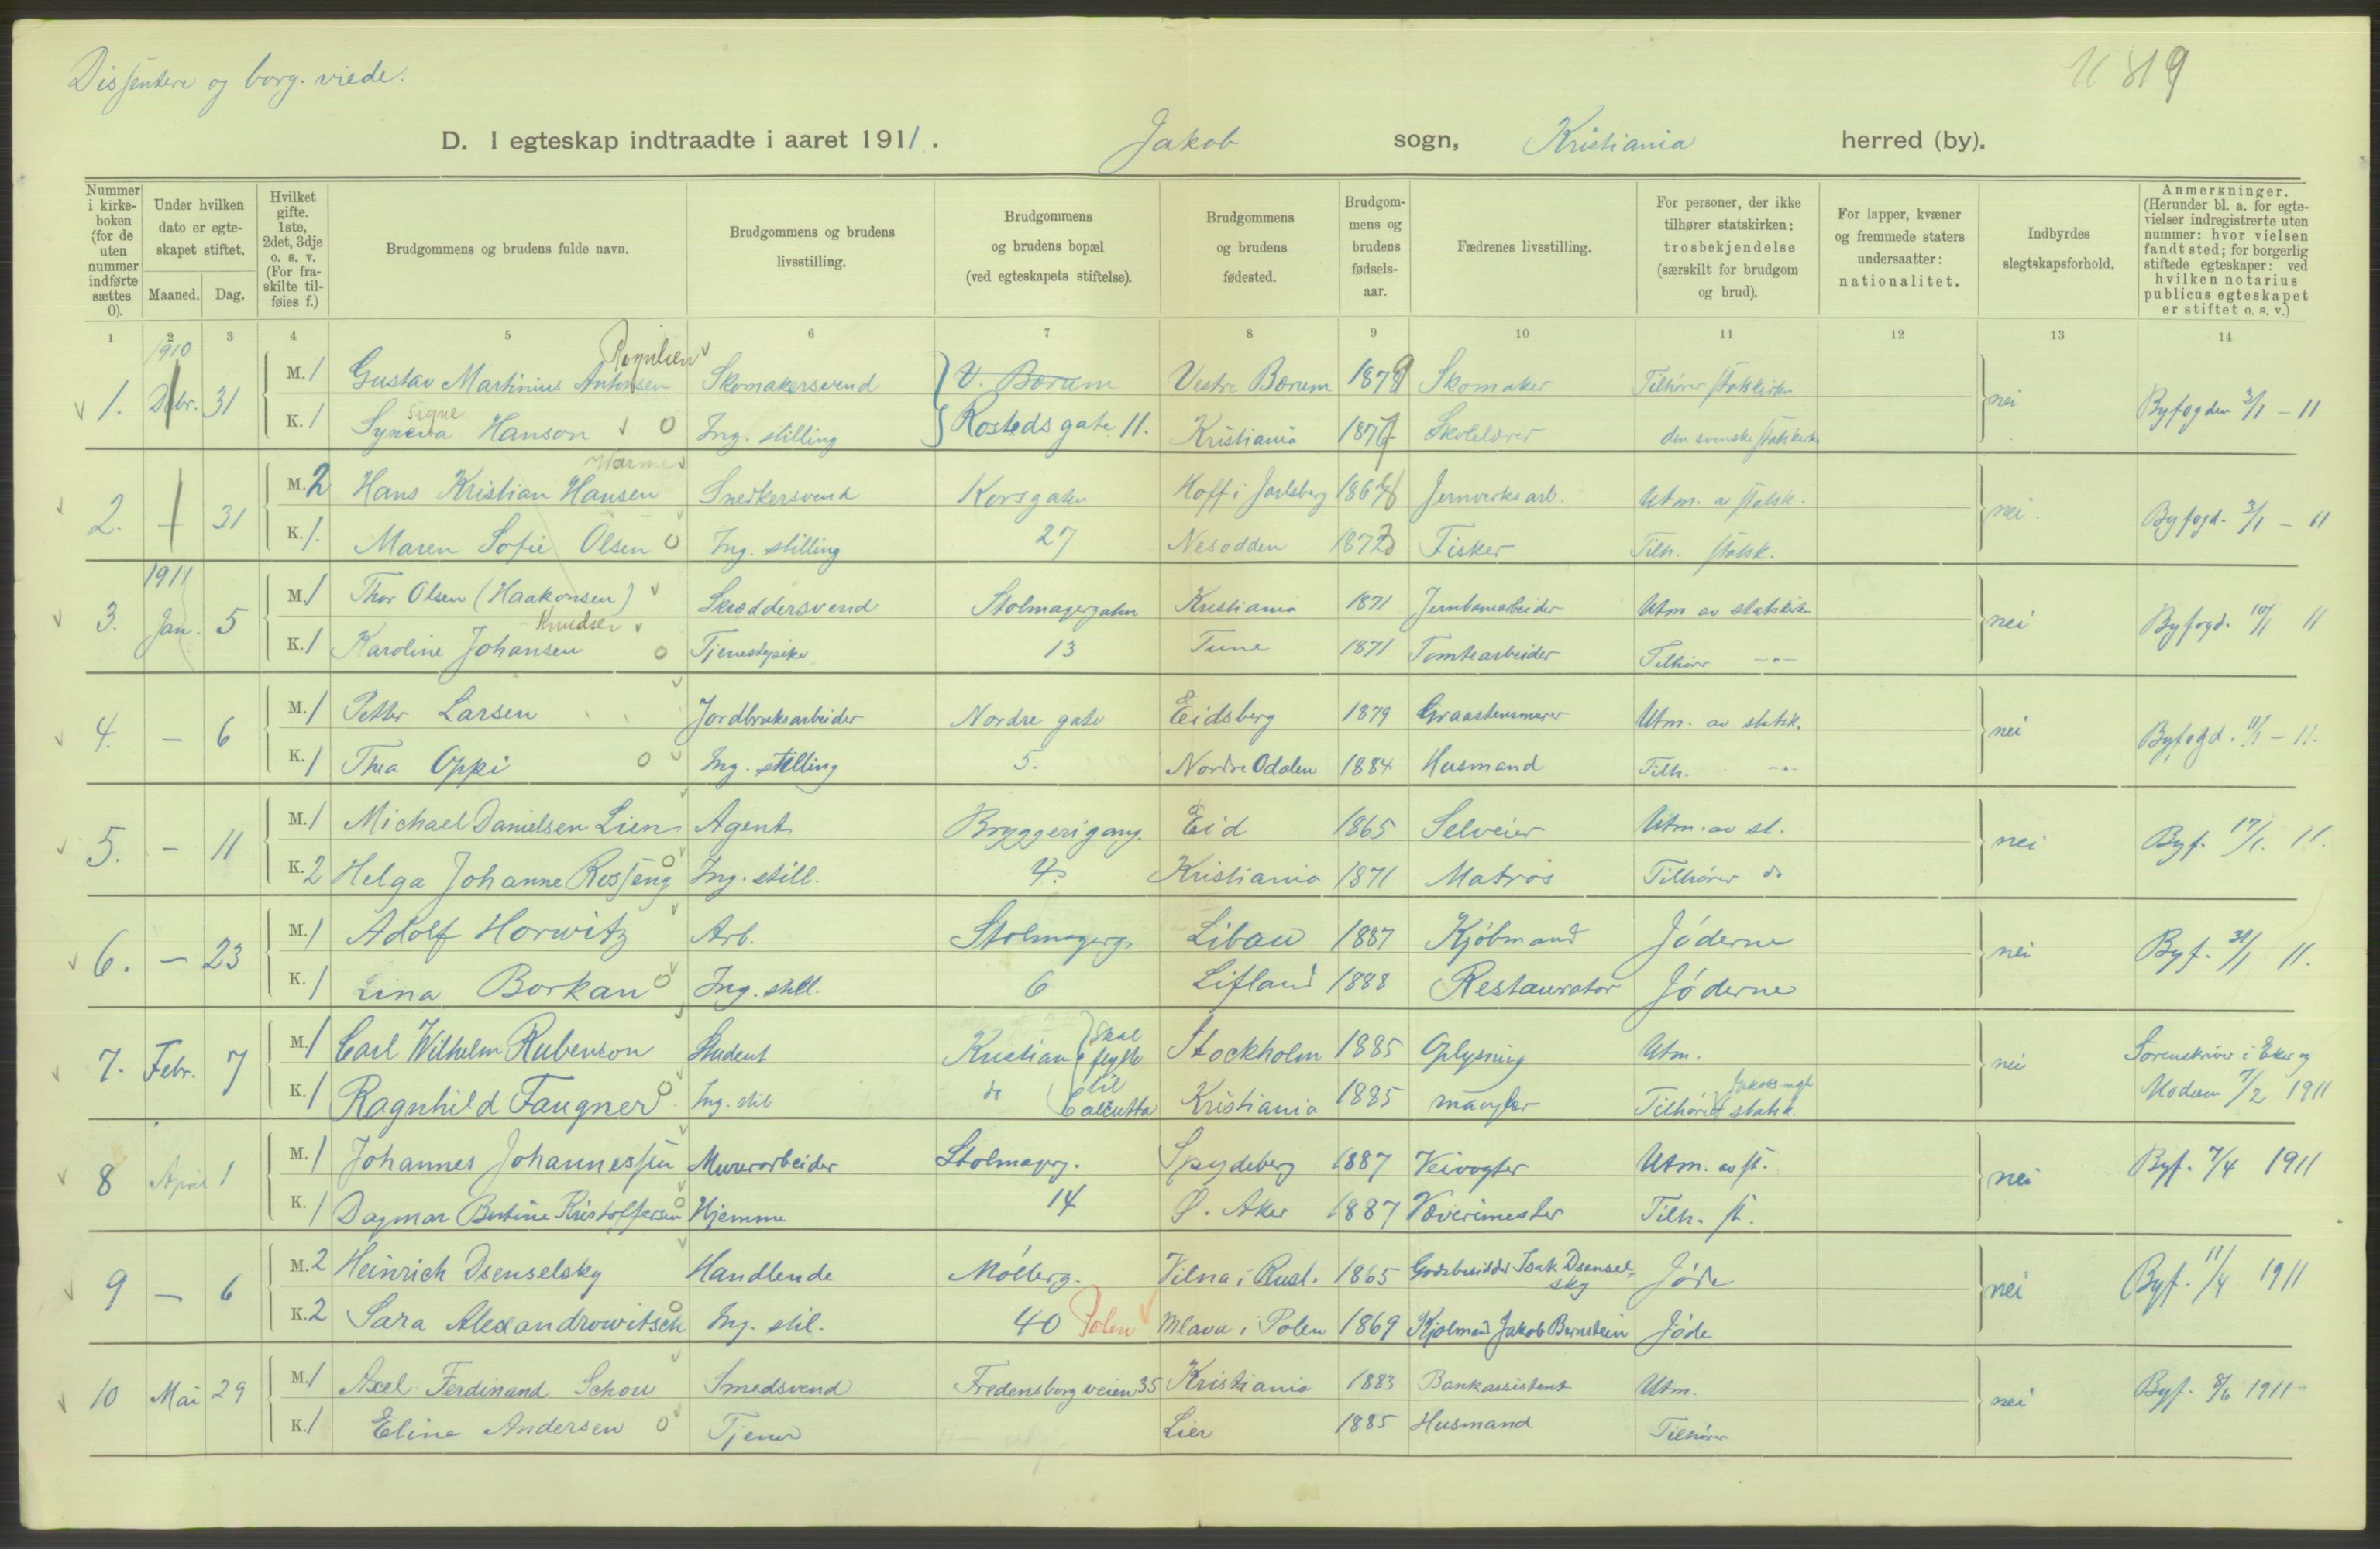 Dissentere og borg. viede.
D. I egteskap indtraadte i aaret 1911. Jakob sogn, Kristiania herred (by).
Nummer i kirke-boken (for de uten nummer indførte sættes 0).
Under hvilken dato er egte-skapet stiftet.
Maaned. Dag.
Hvilket gifte. 1ste, 2det, 3dje o. s. v. (For fra-skilte til-føies f.)
Brudgommens og brudens fulde navn.
Brudgommens og brudens livsstilling.
Brudgommens og brudens bopæl (ved egteskapets stiftelse).
Brudgommens og brudens fødested.
Brudgom-mens og brudens fødsels-aar.
Fædrenes livsstilling.
For personer, der ikke tilhører statskirken: trosbekjendelse (særskilt for brudgom og brud).
For lapper, kvæner og fremmede staters undersaatter: nationalitet.
Indbyrdes slegtskapsforhold.
Anmerkninger. (Herunder bl. a. for egte-vielser indregistrerte uten nummer: hvor vielsen fandt sted; for borgerlig stiftede egteskaper: ved hvilken notarius publicus egteskapet er stiftet o. s. v.)
1 2 3 4 5 6 7 8 9 10 11 12 13 14
1910
1. Dbr. 31 M. 1 Gustav Martinius Antonsen Skomakersvend V. Bærum Vestre Bærum 1879 Skomaker Tilhører statskirken nei Byfogden 3/1 - 11
Signe
K. 1 Syneva Hanson O Ing. stilling Rosteds gate 11. Kristiania 187 Skolelærer den svenske statskirke
2. 31 M. 2 Hans Kristian Hansen Snedkersvend Korsgaten Hoff i Jarlsberg 186 Jernverksarb. Utm. av statsk. nei. Byfogd. 3/1 - 11
K. 1. Maren Sofie Olsen O Ing. stilling 27 Nesodden 187 Fisker Tilh. statsk.
1911
3. Jan. 5 M. 1 Thor Olsen (Haakonsen) Skræddersvend Stolmagergaten Kristiania 1871 Jernbanearbeider Utm av statskirken nei Byfogd. 10/1 11
Knudsen
K. 1 Karoline Johansen O Tjenestepike 13 Tune 1871 Tomtearbeider Tilhører -"-
4. - 6 M. 1 Petter Larsen Jordbruksarbeider Nordre gate Eidsberg 1879 Graastensmurer Utm. av statsk. nei Byfogd. 11/1 - 11.
K. 1 Thea Oppi O Ing. stilling 5. Nordre Odalen 1884 Husmand Tilh. -"-
5. - 11 M. 1 Michael Danielsen Lien Agent Bryggerigang. Eid 1865 Selveier Utm. av st. nei Byf. 17/1. 11.
K. 2 Helga Johanne Rosseng O Ing. still. 4. Kristiania 1871 Matros Tilhører do
6. - 23 M. 1 Adolf Horwitz Arb. Stolmagerg. Libau 1887 Kjøbmand Jøderne nei Byf. 31/1 11.
K. 1 Lina Borkan O Ing. still. 6 Lifland 1888 Restauratør Jøderne
7. Febr. 7 M. 1 Carl Wilhelm Rubenson Student Kristiania skal flytte Stockholm 1885 Oplysning Utm. nei Sorenskriver i Eker og
K. 1 Ragnhild Faugner O Ing. stil do til Calcutta Kristiania 1885 mangler Tilhører statsk. Modum 7/2 1911
8 April 1 M. 1 Johannes Johannessen Murerarbeider Stolmagerg. Spydeberg 1887 Veivogter Utm. av st. nei Byf. 7/4 1911
K. 1 Dagmar Bertine Kristoffersen O Hjemme 14 Ø. Aker 1887 Væverimester Tilh. st.
9 - 6 M. 2 Heinrich Dsenselsky Handlende Mölberg. Vilna i Rusl. 1865 Godsbesidder Isak Dsensel-sky Jøde nei Byf. 11/4 1911
K. 2 Sara Alexandrowitsch O Ing. stil. 40 Polen Mlava i Polen 1869 Kjøbmand Jakob Bernstein Jøde
10 Mai 29 M. 1 Axel Ferdinand Schou Smedsvend Fredensborgveien 35 Kristiania 1883 Bankassistent Utm. nei Byf. 8/6 1911
K. 1 Eline Andersen O Tjener Lier 1885 Husmand Tilhører